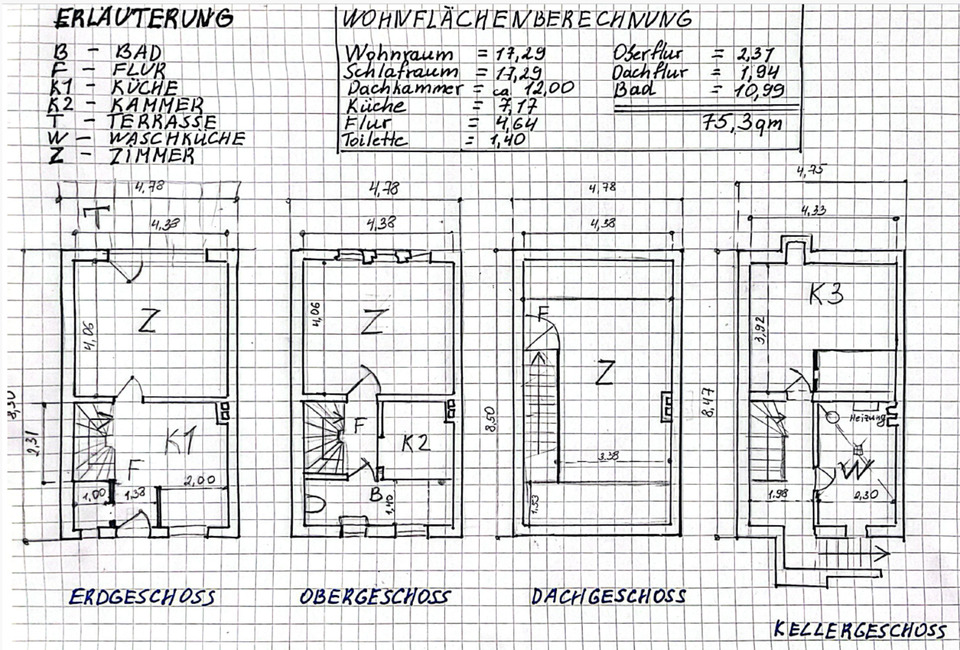 ERLÄUTERUNG
B - BAD
F - FLUR
K1 - KÜCHE
K2 - KAMMER
T - TERRASSE
W - WASCHKÜCHE
Z - ZIMMER
WOHNFLÄCHENBERECHNUNG
Wohnraum = 17,29
Schlafraum = 17,29
Dachkammer = ca 12,00
Küche = 7,17
Flur = 4,64
Toilette = 1,40
Oberflur = 2,31
Dachflur = 1,94
Bad = 10,99
75,3qm
4,78
T
4,38
4,06
Z
8,50
2,31
K1
F
1,00
1,38
2,00
ERDGESCHOSS
4,78
4,38
4,06
Z
F
K2
B
1,40
OBERGESCHOSS
4,78
4,38
F
Z
8,50
3,38
1,53
DACHGESCHOSS
4,75
4,33
K3
3,92
8,47
Heizung
W
1,98
2,30
KELLERGESCHOSS